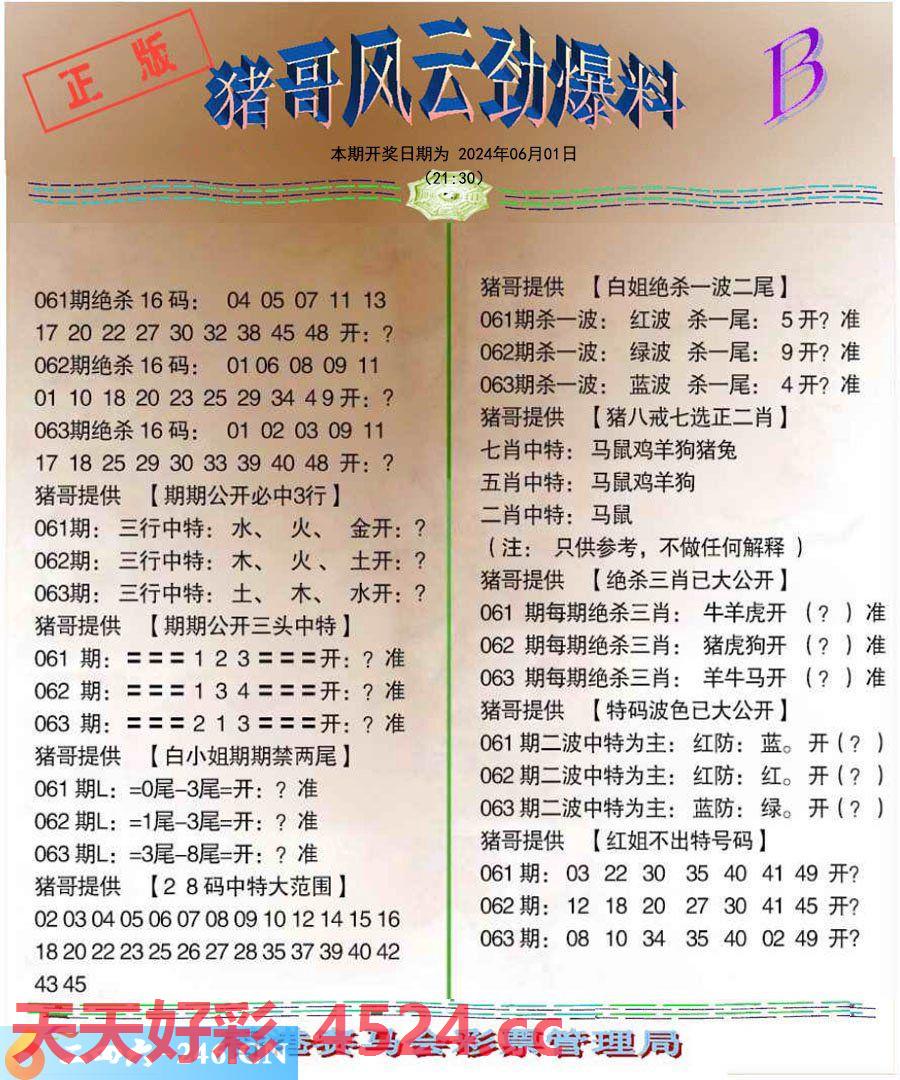 正版
猪哥风云劲爆料
B
本期开奖日期为 2024年06月01日
(21:30)
061期绝杀16码： 04 05 07 11 13
17 20 22 27 30 32 38 45 48 开：？
062期绝杀16码： 01 06 08 09 11
01 10 18 20 23 25 29 34 49 开：？
063期绝杀16码： 01 02 03 09 11
17 18 25 29 30 33 39 40 48 开：？
猪哥提供 【期期公开必中3行】
061期： 三行中特：水、 火、 金开：？
062期： 三行中特：木、 火、 土开：？
063期： 三行中特：土、 木、 水开：？
猪哥提供 【期期公开三头中特】
061 期：〓〓〓1 2 3〓〓〓开：？准
062 期：〓〓〓1 3 4〓〓〓开：？准
063 期：〓〓〓2 1 3〓〓〓开：？准
猪哥提供 【白小姐期期禁两尾】
061 期L：=0尾-3尾=开：？准
062 期L：=1尾-3尾=开：？准
063 期L：=3尾-8尾=开：？准
猪哥提供 【２８码中特大范围】
02 03 04 05 06 07 08 09 10 12 14 15 16
18 20 22 23 25 26 27 28 35 37 39 40 42
43 45
猪哥提供 【白姐绝杀一波二尾】
061期杀一波： 红波 杀一尾： 5开？准
062期杀一波： 绿波 杀一尾： 9开？准
063期杀一波： 蓝波 杀一尾： 4开？准
猪哥提供 【猪八戒七选正二肖】
七肖中特： 马鼠鸡羊狗猪兔
五肖中特： 马鼠鸡羊狗
二肖中特： 马鼠
（注： 只供参考，不做任何解释）
猪哥提供 【绝杀三肖已大公开】
061 期每期绝杀三肖： 牛羊虎开 （？）准
062 期每期绝杀三肖： 猪虎狗开 （？）准
063 期每期绝杀三肖： 羊牛马开 （？）准
猪哥提供 【特码波色已大公开】
061 期二波中特为主： 红防： 蓝。 开（？）
062 期二波中特为主： 红防： 红。 开（？）
063 期二波中特为主： 蓝防： 绿。 开（？）
猪哥提供 【红姐不出特号码】
061 期： 03 22 30 35 40 41 49 开？
062 期： 12 18 20 27 30 41 45 开？
063 期： 08 10 34 35 40 02 49 开？
天天好彩 4524.cc
马会彩票管理局